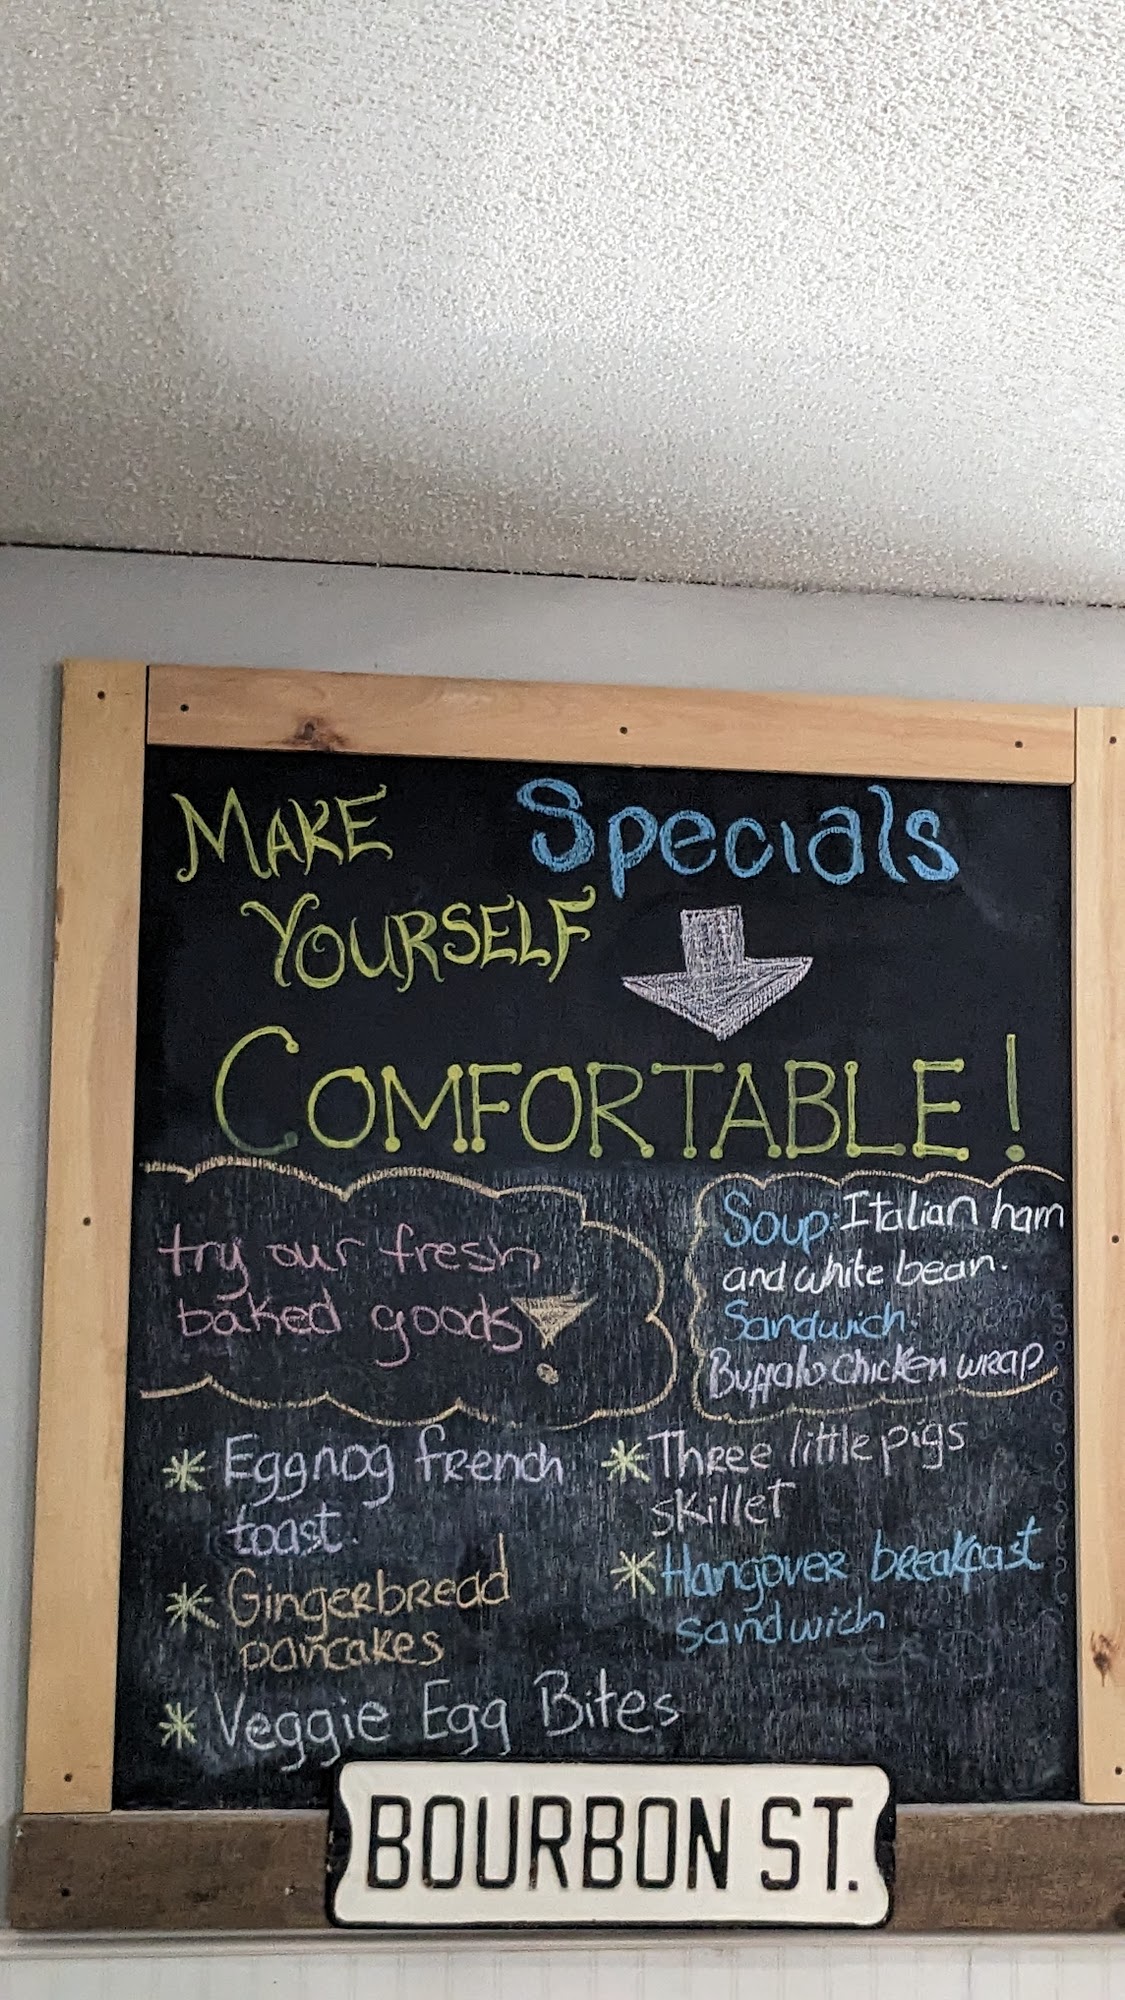 MAKE
YOURSELF
COMFORTABLE!
Specials
try our fresh
baked goods!
Soup: Italian ham
and white bean.
Sandwich:
Buffalo chicken wrap
* Eggnog french
toast.
* Gingerbread
pancakes
* Veggie Egg Bites
* Three little pigs
skillet
* Hangover breakfast
sandwich
BOURBON ST.